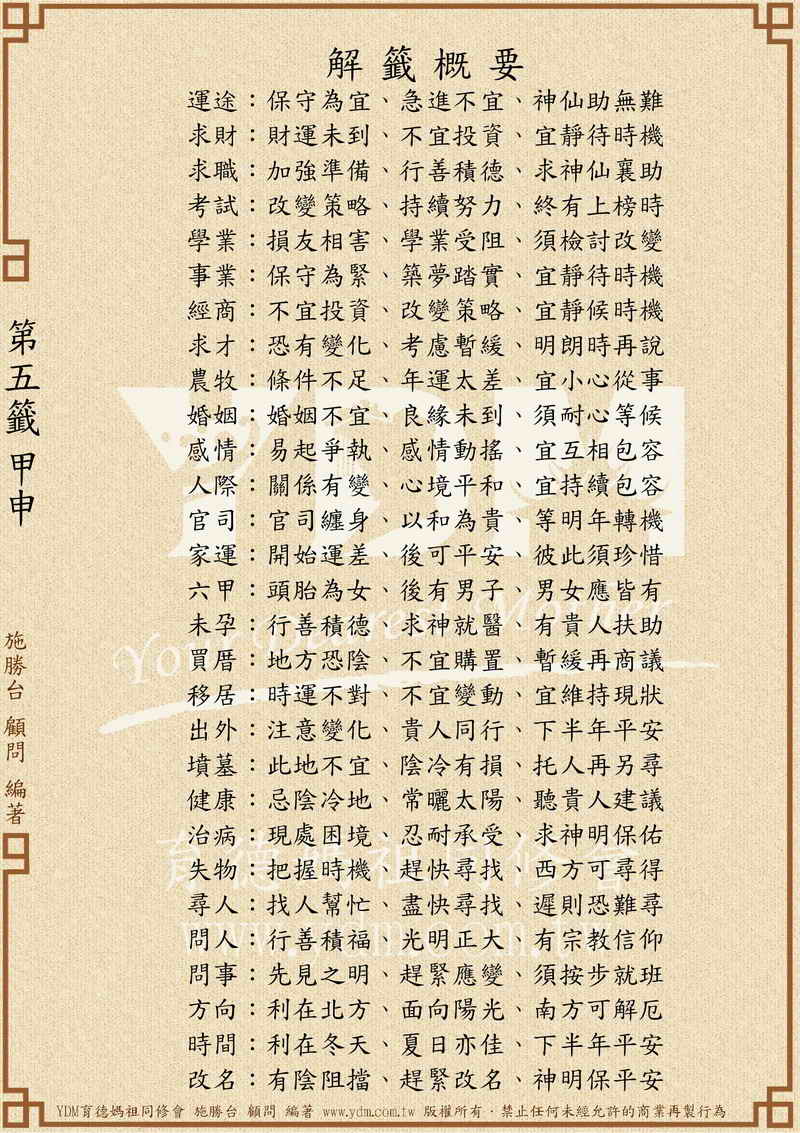 解籤概要
運途：保守為宜、急進不宜、神仙助無難
求財：財運未到、不宜投資、宜靜待時機
求職：加強準備、行善積德、求神仙襄助
考試：改變策略、持續努力、終有上榜時
學業：損友相害、學業受阻、須檢討改變
事業：保守為緊、築夢踏實、宜靜待時機
經商：不宜投資、改變策略、宜靜候時機
求才：恐有變化、考慮暫緩、明朗時再說
農牧：條件不足、年運太差、宜小心從事
婚姻：婚姻不宜、良緣未到、須耐心等候
感情：易起爭執、感情動搖、宜互相包容
人際：關係有變、心境平和、宜持續包容
官司：官司纏身、以和為貴、等明年轉機
家運：開始運差、後可平安、彼此須珍惜
六甲：頭胎為女、後有男子、男女應皆有
未孕：行善積德、求神就醫、有貴人扶助
買厝：地方恐陰、不宜購置、暫緩再商議
移居：時運不對、不宜變動、宜維持現狀
出外：注意變化、貴人同行、下半年平安
墳墓：此地不宜、陰冷有損、托人再另尋
健康：忌陰冷地、常曬太陽、聽貴人建議
治病：現處困境、忍耐承受、求神明保佑
失物：把握時機、趕快尋找、西方可尋得
尋人：找人幫忙、盡快尋找、遲則恐難尋
問人：行善積福、光明正大、有宗教信仰
問事：先見之明、趕緊應變、須按步就班
方向：利在北方、面向陽光、南方可解厄
時間：利在冬天、夏日亦佳、下半年平安
改名：有陰阻擋、趕緊改名、神明保平安
第五籤 甲申
施勝台 顧問 編著
YDM
Your Dearest Mother
育德媽祖同修會
www.ydm.com.tw
YDM育德媽祖同修會 施勝台 顧問 編著 www.ydm.com.tw 版權所有‧禁止任何未經允許的商業再製行為